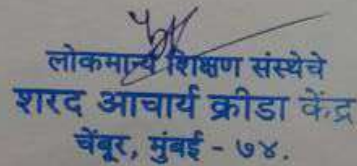 लोकमान्य शिक्षण संस्थेचे
शरद आचार्य क्रीडा केंद्र
चेंबूर, मुंबई - ७४.